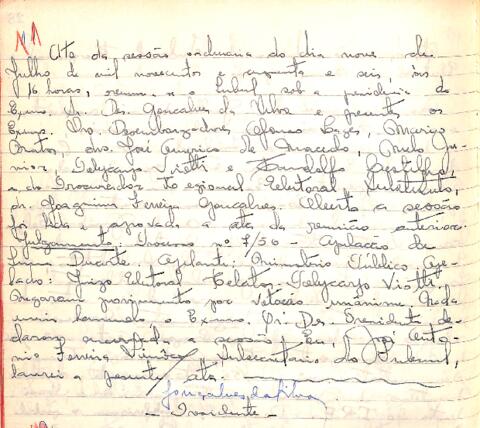 Ata da sessão ordinaria do dia nove de
Julho de mil novecentos e cinquenta e seis, às
16 horas, reuniu-se o Tribunal sob a presidencia do
Exmo. Sr. Des. Gonçalves da Silva e presentes os
Exmos. Drs. Desembargadores Afonso Lages, Marcio
drs. José Americo de Macedo, Melo Ju-
nior, Felycarjo Viotti e
e do Procurador Regional Eleitoral, Substituto,
dr. Joaquim Ferreira Gonçalves. Aberta a sessão
foi lida e aprovada a ata da reunião anterior.
Julgamento: Processo nº 7/56 - Apelação de
Duarte. Apelante: Ministério Público. Ape-
lado: Juizo Eleitoral. Relator: Felycarjo Viotti.
Negaram provimento por votação unânime. Nada
mais havendo, o Exmo. Sr. Des. Presidente de-
clarou encerrada a sessão. Eu, José Anto-
nio Ferreira Subsecretario do Tribunal,
lavrei a presente ata.
Gonçalves da Silva
- Presidente -